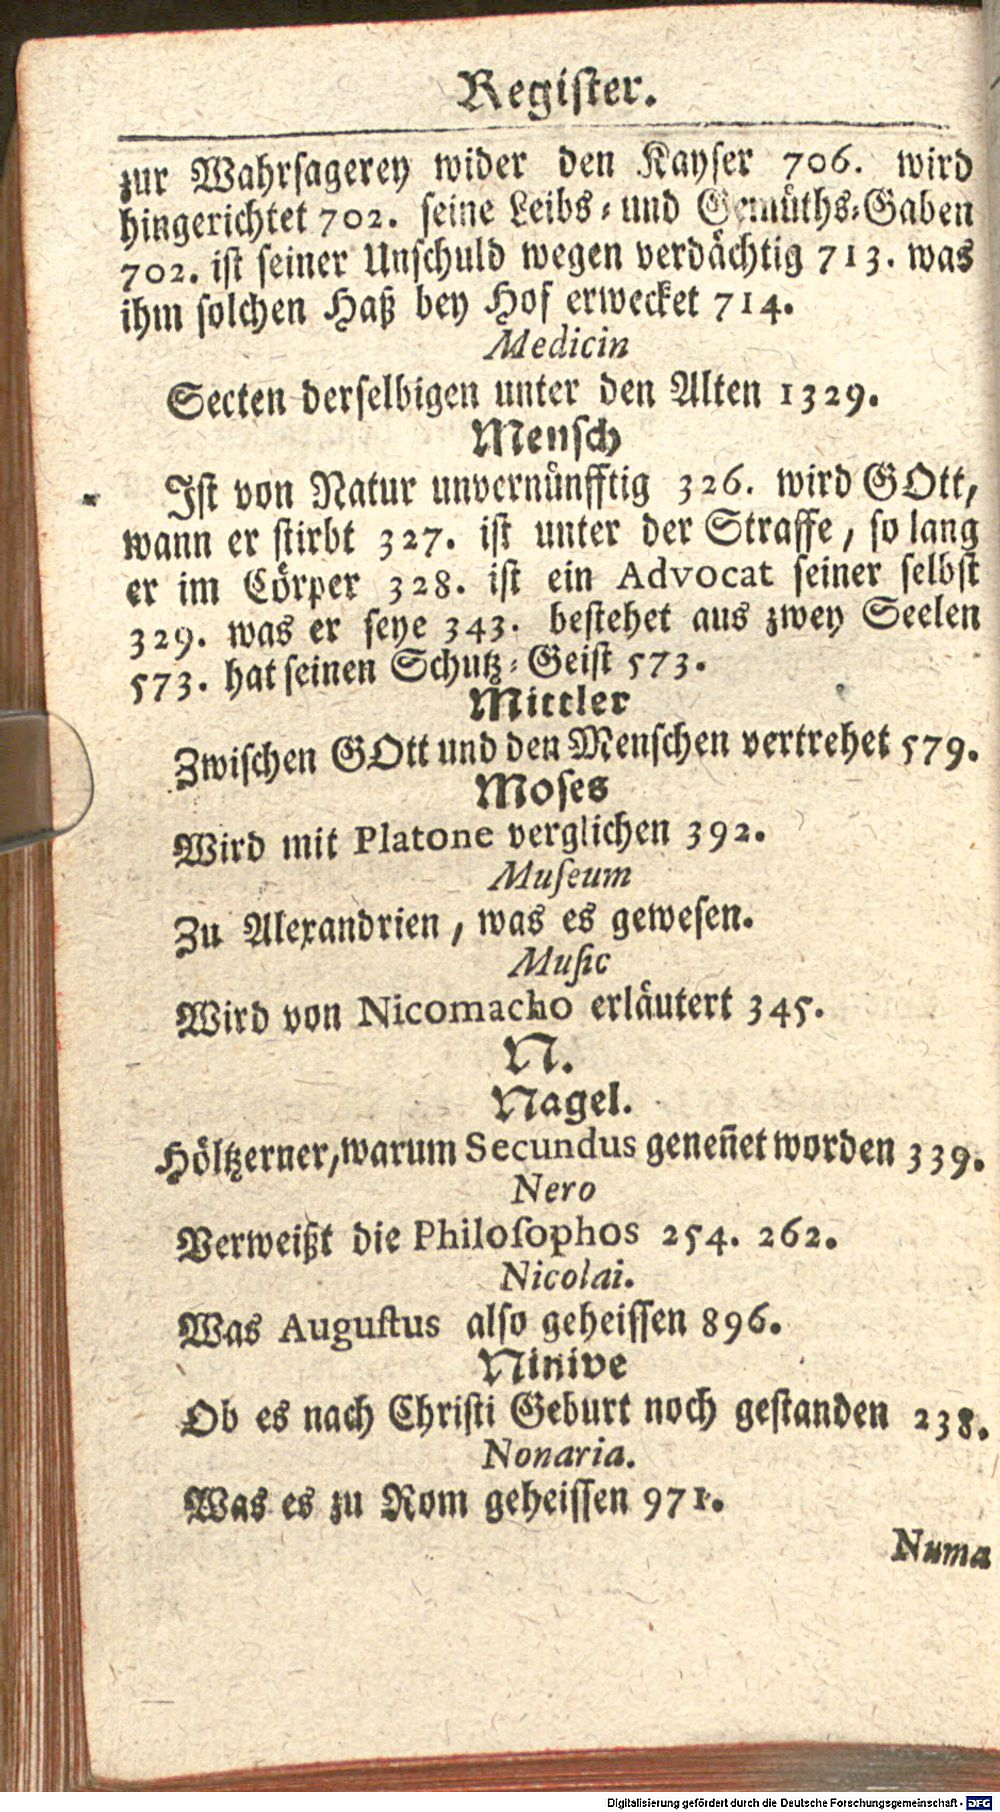 Register.
zur Wahrsagerey wider den Kayser 706. wird
hingerichtet 702. seine Leibs- und Gemüths-Gaben
702. ist seiner Unschuld wegen verdächtig 713. was
ihm solchen Haß bey Hof erwecket 714.
Medicin
Secten derselbigen unter den Alten 1329.
Mensch
Ist von Natur unvernünfftig 326. wird GOtt,
wann er stirbt 327. ist unter der Straffe, so lang
er im Cörper 328. ist ein Advocat seiner selbst
329. was er seye 343. bestehet aus zwey Seelen
573. hat seinen Schutz-Geist 573.
Mittler
Zwischen GOtt und den Menschen vertrehet 579.
Moses
Wird mit Platone verglichen 392.
Museum
Zu Alexandrien, was es gewesen.
Music
Wird von Nicomacho erläutert 345.
N.
Nagel.
Höltzerner, warum Secundus geneñet worden 339.
Nero
Verweißt die Philosophos 254. 262.
Nicolai.
Was Augustus also geheissen 896.
Ninive
Ob es nach Christi Geburt noch gestanden 238.
Nonaria.
Was es zu Rom geheissen 971.
Numa
Digitalisierung gefördert durch die Deutsche Forschungsgemeinschaft - DFG